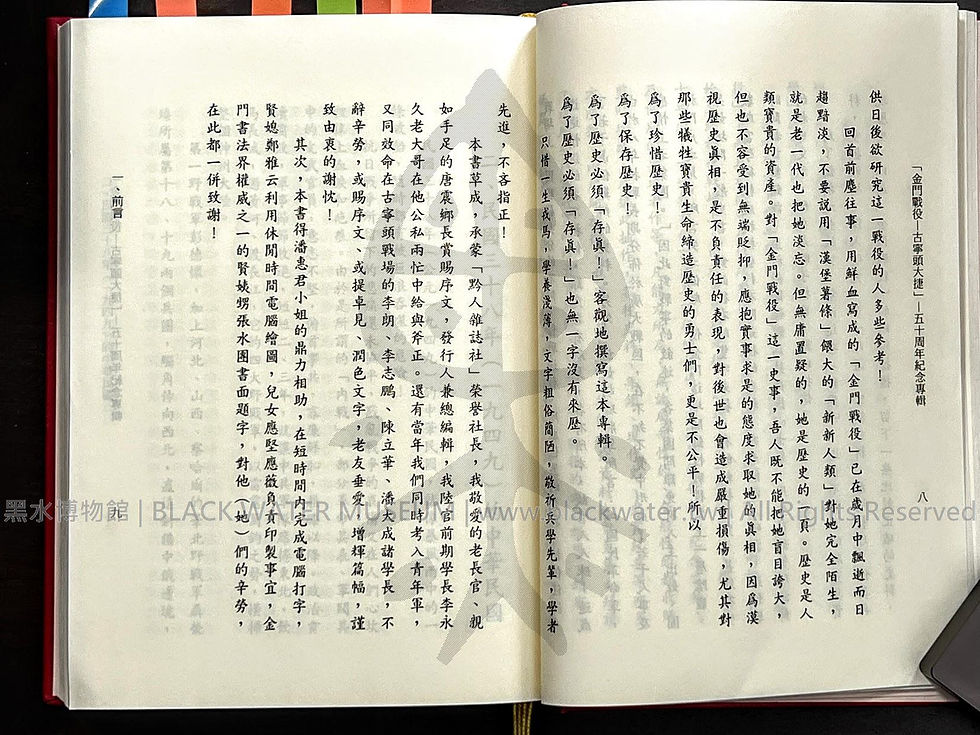 「金門戰役—古寧頭大捷」—五十周年紀念專輯
八
供日後欲研究這一戰役的人多些參考！
回首前塵往事，用鮮血寫成的「金門戰役」已在歲月中飄逝而日
趨黯淡，不要說用「漢堡薯條」餵大的「新新人類」對她完全陌生，
就是老一代也把她淡忘。但無庸置疑的，她是歷史的一頁。歷史是人
類寶貴的資產。對「金門戰役」這一史事，吾人既不能把她盲目誇大，
但也不容受到無端貶抑，應抱實事求是的態度求取她的真相，因為漠
視歷史真相，是不負責任的表現，對後世也會造成嚴重損傷，尤其對
那些犧牲寶貴生命締造歷史的勇士們，更是不公平！所以
為了珍惜歷史！
為了保存歷史！
為了歷史必須「存真！」客觀地撰寫這本專輯。
為了歷史必須「存真！」也無一字沒有來歷。
只惜一生戎馬，學養淺薄，文字粗俗簡陋，敬祈兵學先輩，學者
先進，不吝指正！
本書草成，承蒙「黔人雜誌社」榮譽社長，我敬愛的老長官、親
如手足的唐震鄉長賞賜序文，發行人兼總編輯，我陸官前期學長李永
久老大哥在他公私兩忙中給與斧正。還有當年我們同時考入青年軍，
又同效命在古寧頭戰場的李朗、李志鵬、陳立華、潘大成諸學長，不
辭辛勞，或賜序文、或提卓見、潤色文字，老友垂愛，增輝篇幅，謹
致由衷的謝忱！
其次，本書得潘惠君小姐的鼎力相助，在短時間內完成電腦打字，
賢媳鄭雅云利用休閒時間電腦繪圖，兒女應堅應薇負責印製事宜，金
門書法界權威之一的賢姨甥張水團書面題字，對他（她）們的辛勞，
在此都一併致謝！
一、前言
九
黑水博物館 | BLACK WATER MUSEUM | www.blackwater.tw | All Rights Reserved